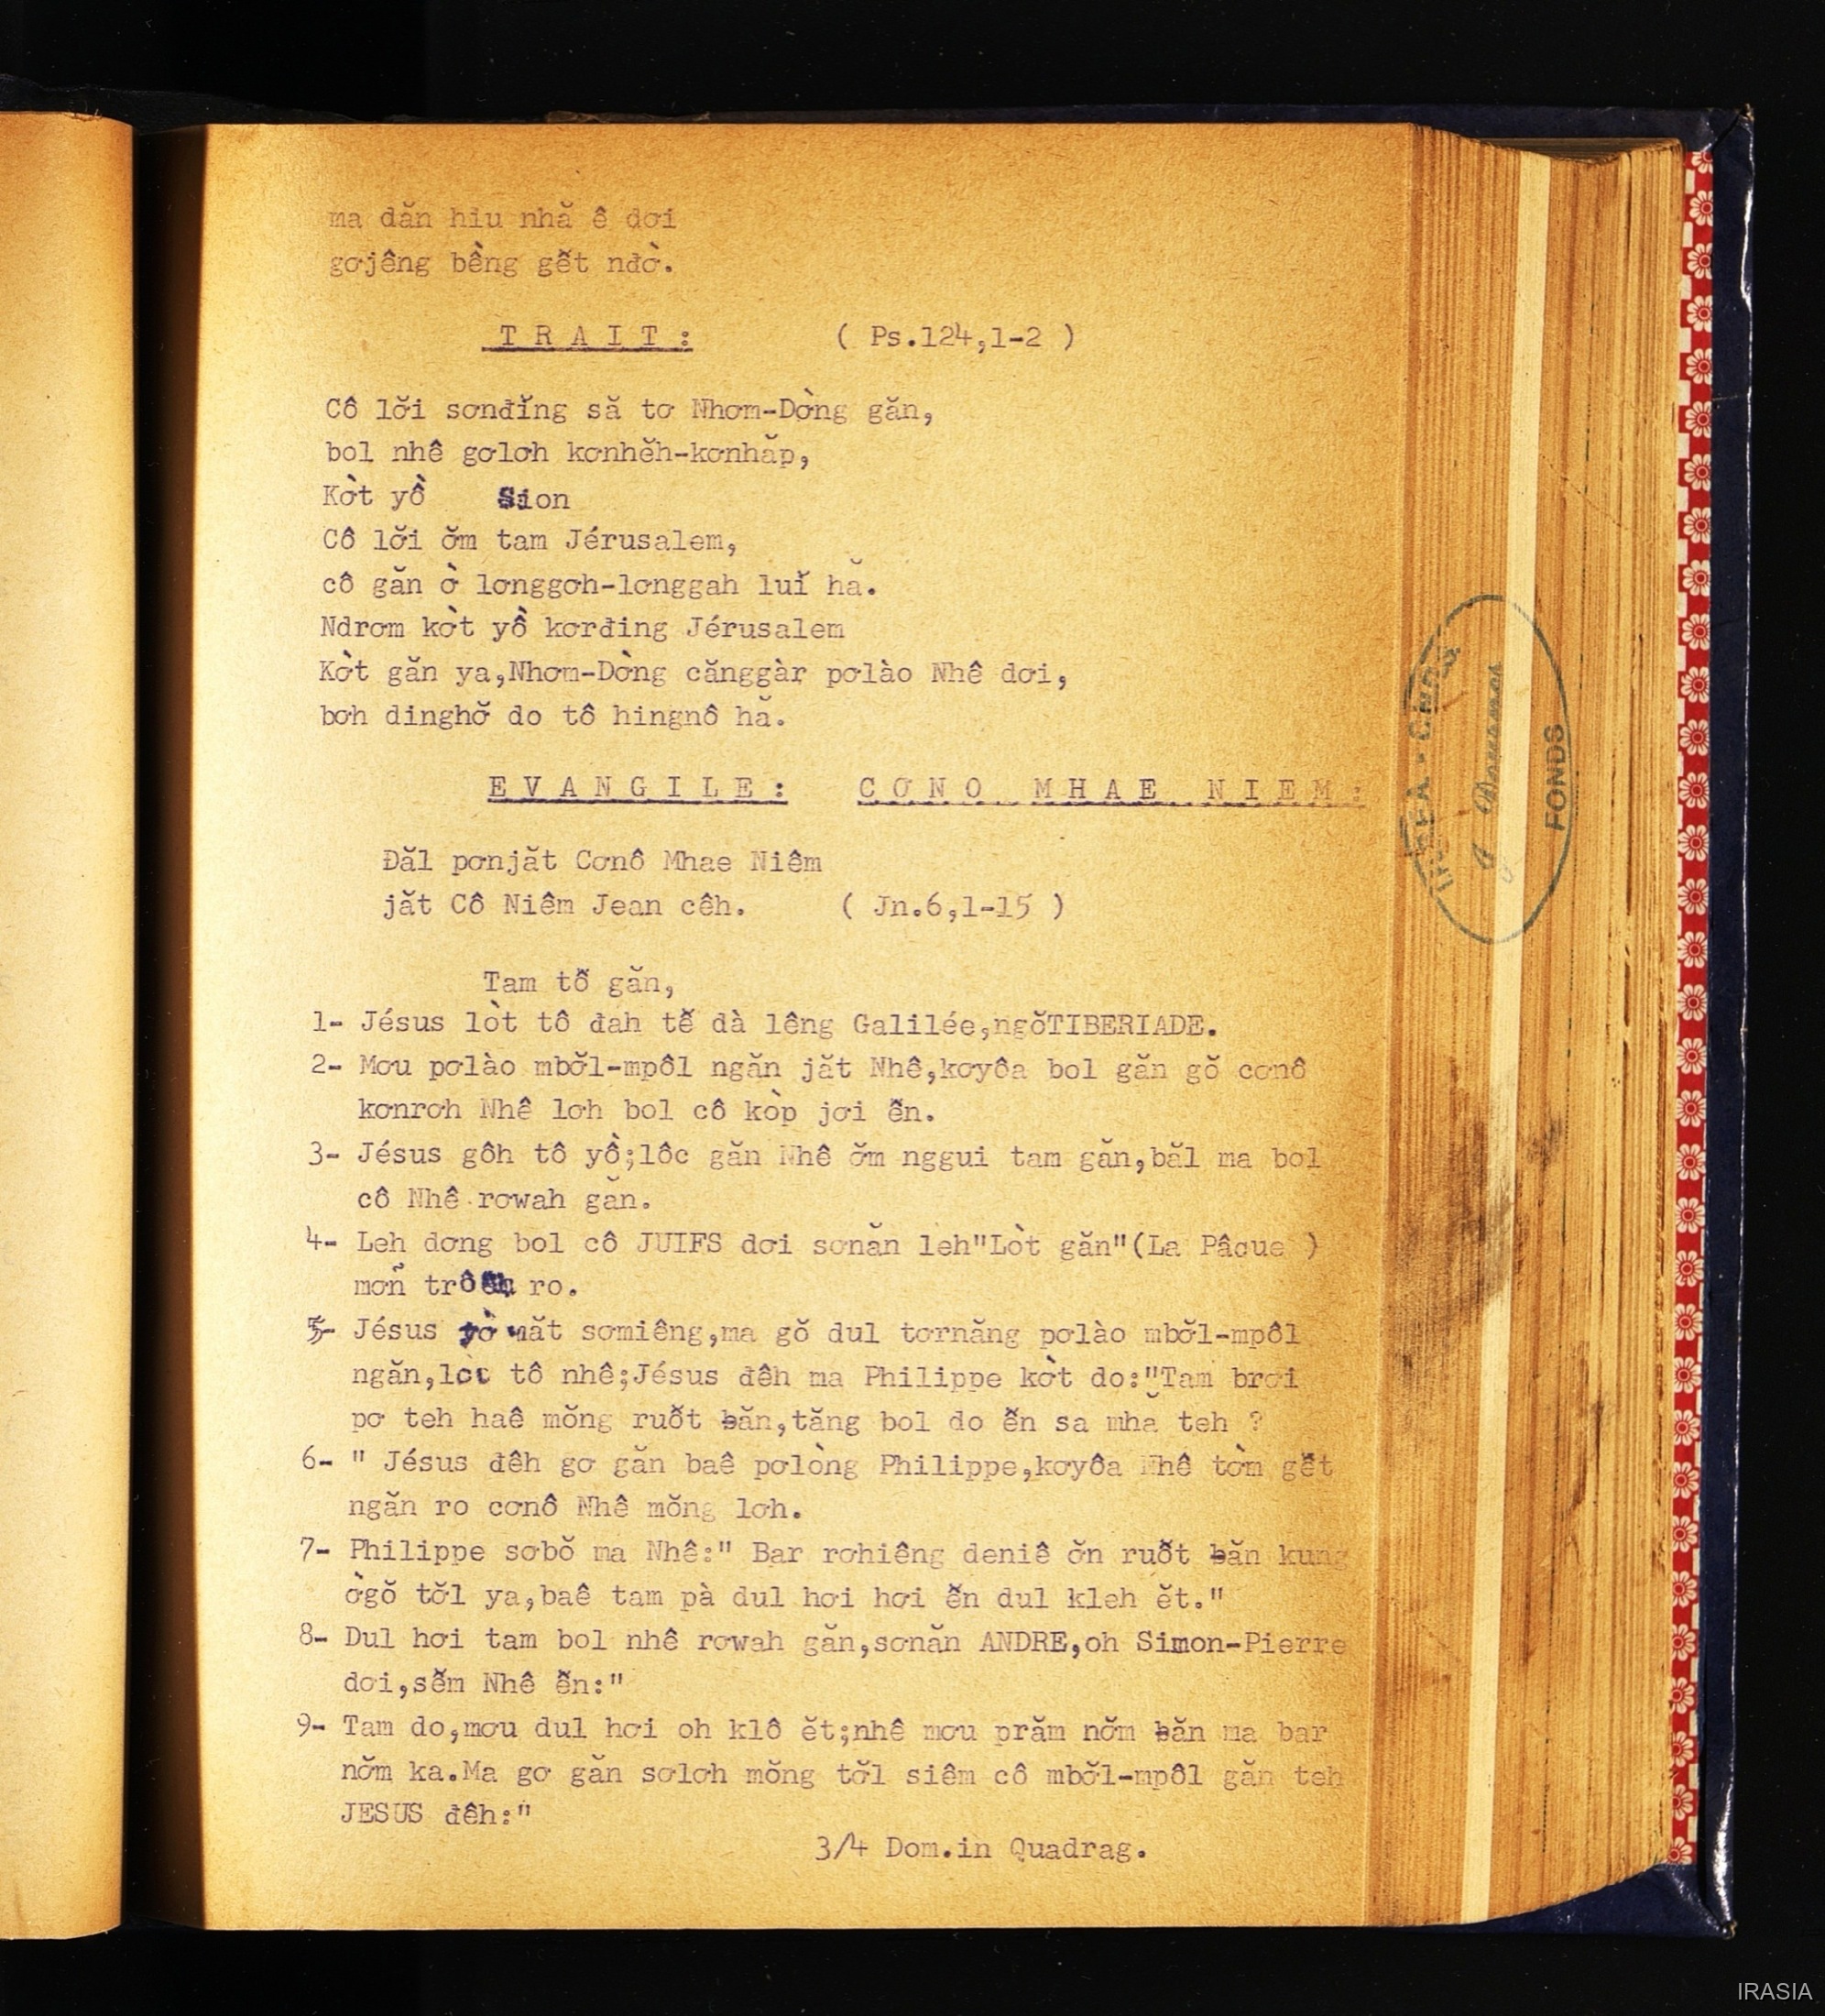 ma dăn hiu nhă ê dơi
gơjêng bềng gêt̆ nđờ.
T R A I T :        ( Ps.124,1-2 )
Cô lơ̆i sơnđĭng să tơ Nhơm-Dờng găn,
bol nhê gơlơh kơnhĕh-kơnhăp,
Kờt yồ    Sion
Cô lơ̆i ơ̆m tam Jérusalem,
cô găn ờ lơnggơh-lơnggah luĭ hă.
Ndrơm kờt yồ kơrđing Jérusalem
Kờt găn ya,Nhơm-Dờng cănggàr pơlào Nhê dơi,
bơh dinghơ̆ do tô hingnô hă.
E V A N G I L E :   C Ơ N O  M H A E  N I E M :
Đăl pơnjăt Cơnô Mhae Niêm
jăt Cô Niêm Jean cêh.     ( Jn.6,1-15 )
Tam tô̆ găn,
1- Jésus lòt tô đah tê̆ dà lêng Galilée,ngŏTIBERIADE.
2- Mơu pơlào mbơ̆l-mpôl ngăn jăt Nhê,kơyôa bol găn gŏ cơnô
kơnrơh Nhê lơh bol cô kòp jơi ê̆n.
3- Jésus gôh tô yồ;lôc găn Nhê ơ̆m nggui tam găn,băl ma bol
cô Nhê rơwah găn.
4- Leh dơng bol cô JUIFS dơi sơnăn leh"Lòt găn"(La Pâque )
mơn̉ trôêh ro.
5- Jésus yờ măt sơmiêng,ma gŏ dul tơrnăng pơlào mbơ̆l-mpôl
ngăn,lòt tô nhê;Jésus đêh ma Philippe kờt do:"Tam brơi
pơ teh haê mŏng ruô̆t băn,tăng bol do ê̆n sa mhă teh ?
6- " Jésus đêh gơ găn baê pơlòng Philippe,kơyôa Nhê tờm gê̆t
ngăn ro cơnô Nhê mŏng lơh.
7- Philippe sơbŏ ma Nhê:" Bar rơhiêng deniê ơ̆n ruô̆t băn kung
ờgŏ tơ̆l ya,baê tam pà dul hơi hơi ê̆n dul kleh ĕt."
8- Dul hơi tam bol nhê rơwah găn,sơnăn ANDRE,oh Simon-Pierre
dơi,sê̆m Nhê ê̆n:"
9- Tam do,mơu dul hơi oh klô ĕt;nhê mơu prăm nơ̆m băn ma bar
nơ̆m ka.Ma gơ găn sơlơh mŏng tơ̆l siêm cô mbơ̆l-mpôl găn teh
JESUS đêh:"
3/4 Dom.in Quadrag.
FONDS
IRASIA